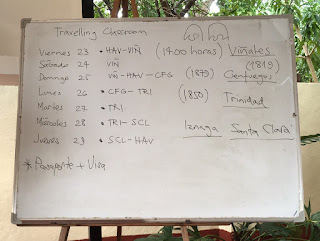 Travelling Classroom
Viernes 23 • HAV-VIÑ (1400 horas) Viñales
Sábado 24 VIÑ (1819)
Domingo 25 VIÑ-HAV-CFG (1879) Cienfuegos
Lunes 26 • CFG-TRI (1850) Trinidad
Martes 27 • TRI
Miércoles 28 • TRI-SCL Iznaga Santa Clara
Jueves 29 • SCL-HAV
* Pasaporte + Visa